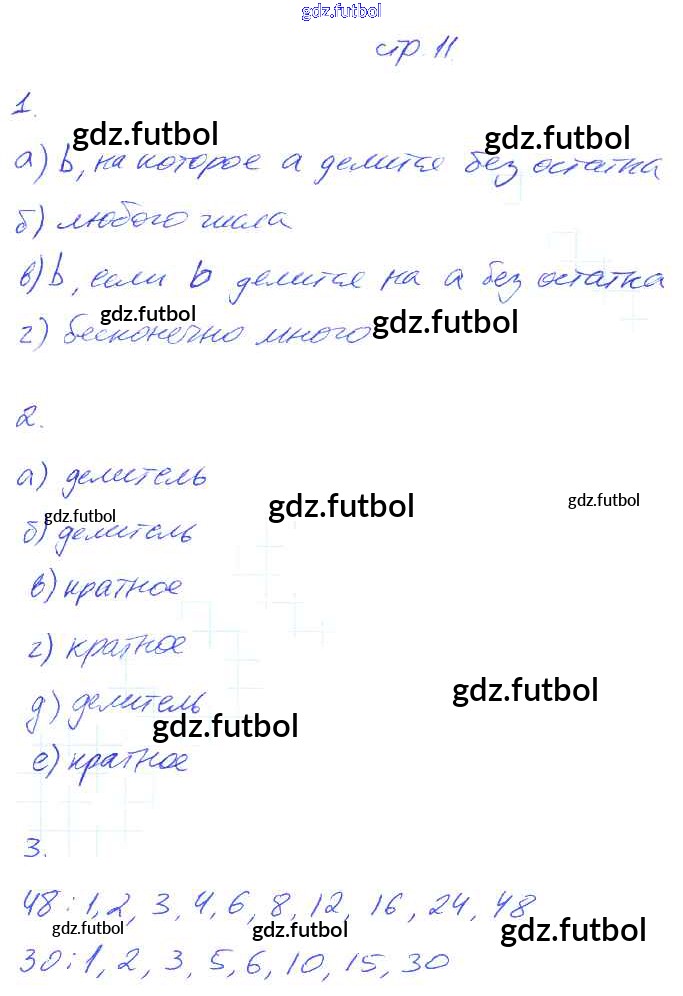 gdz.futbol
стр. 11.
1.
gdz.futbol gdz.futbol
а) b, на которое а делится без остатка
б) любого числа
в) b, если b делится на а без остатка
gdz.futbol gdz.futbol
г) бесконечно много
2.
а) делитель
gdz.futbol gdz.futbol gdz.futbol
б) делитель
в) кратное
г) кратное
gdz.futbol
д) делитель
gdz.futbol
е) кратное
3.
48: 1, 2, 3, 4, 6, 8, 12, 16, 24, 48
gdz.futbol gdz.futbol gdz.futbol
30: 1, 2, 3, 5, 6, 10, 15, 30